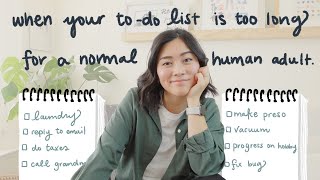 when your to-do list is too long
for a normal human adult.
☐ laundry
☐ reply to email
☐ do taxes
☐ call grandma
☐ make preso
☐ vacuum
☐ progress on hobby
☐ fix bug